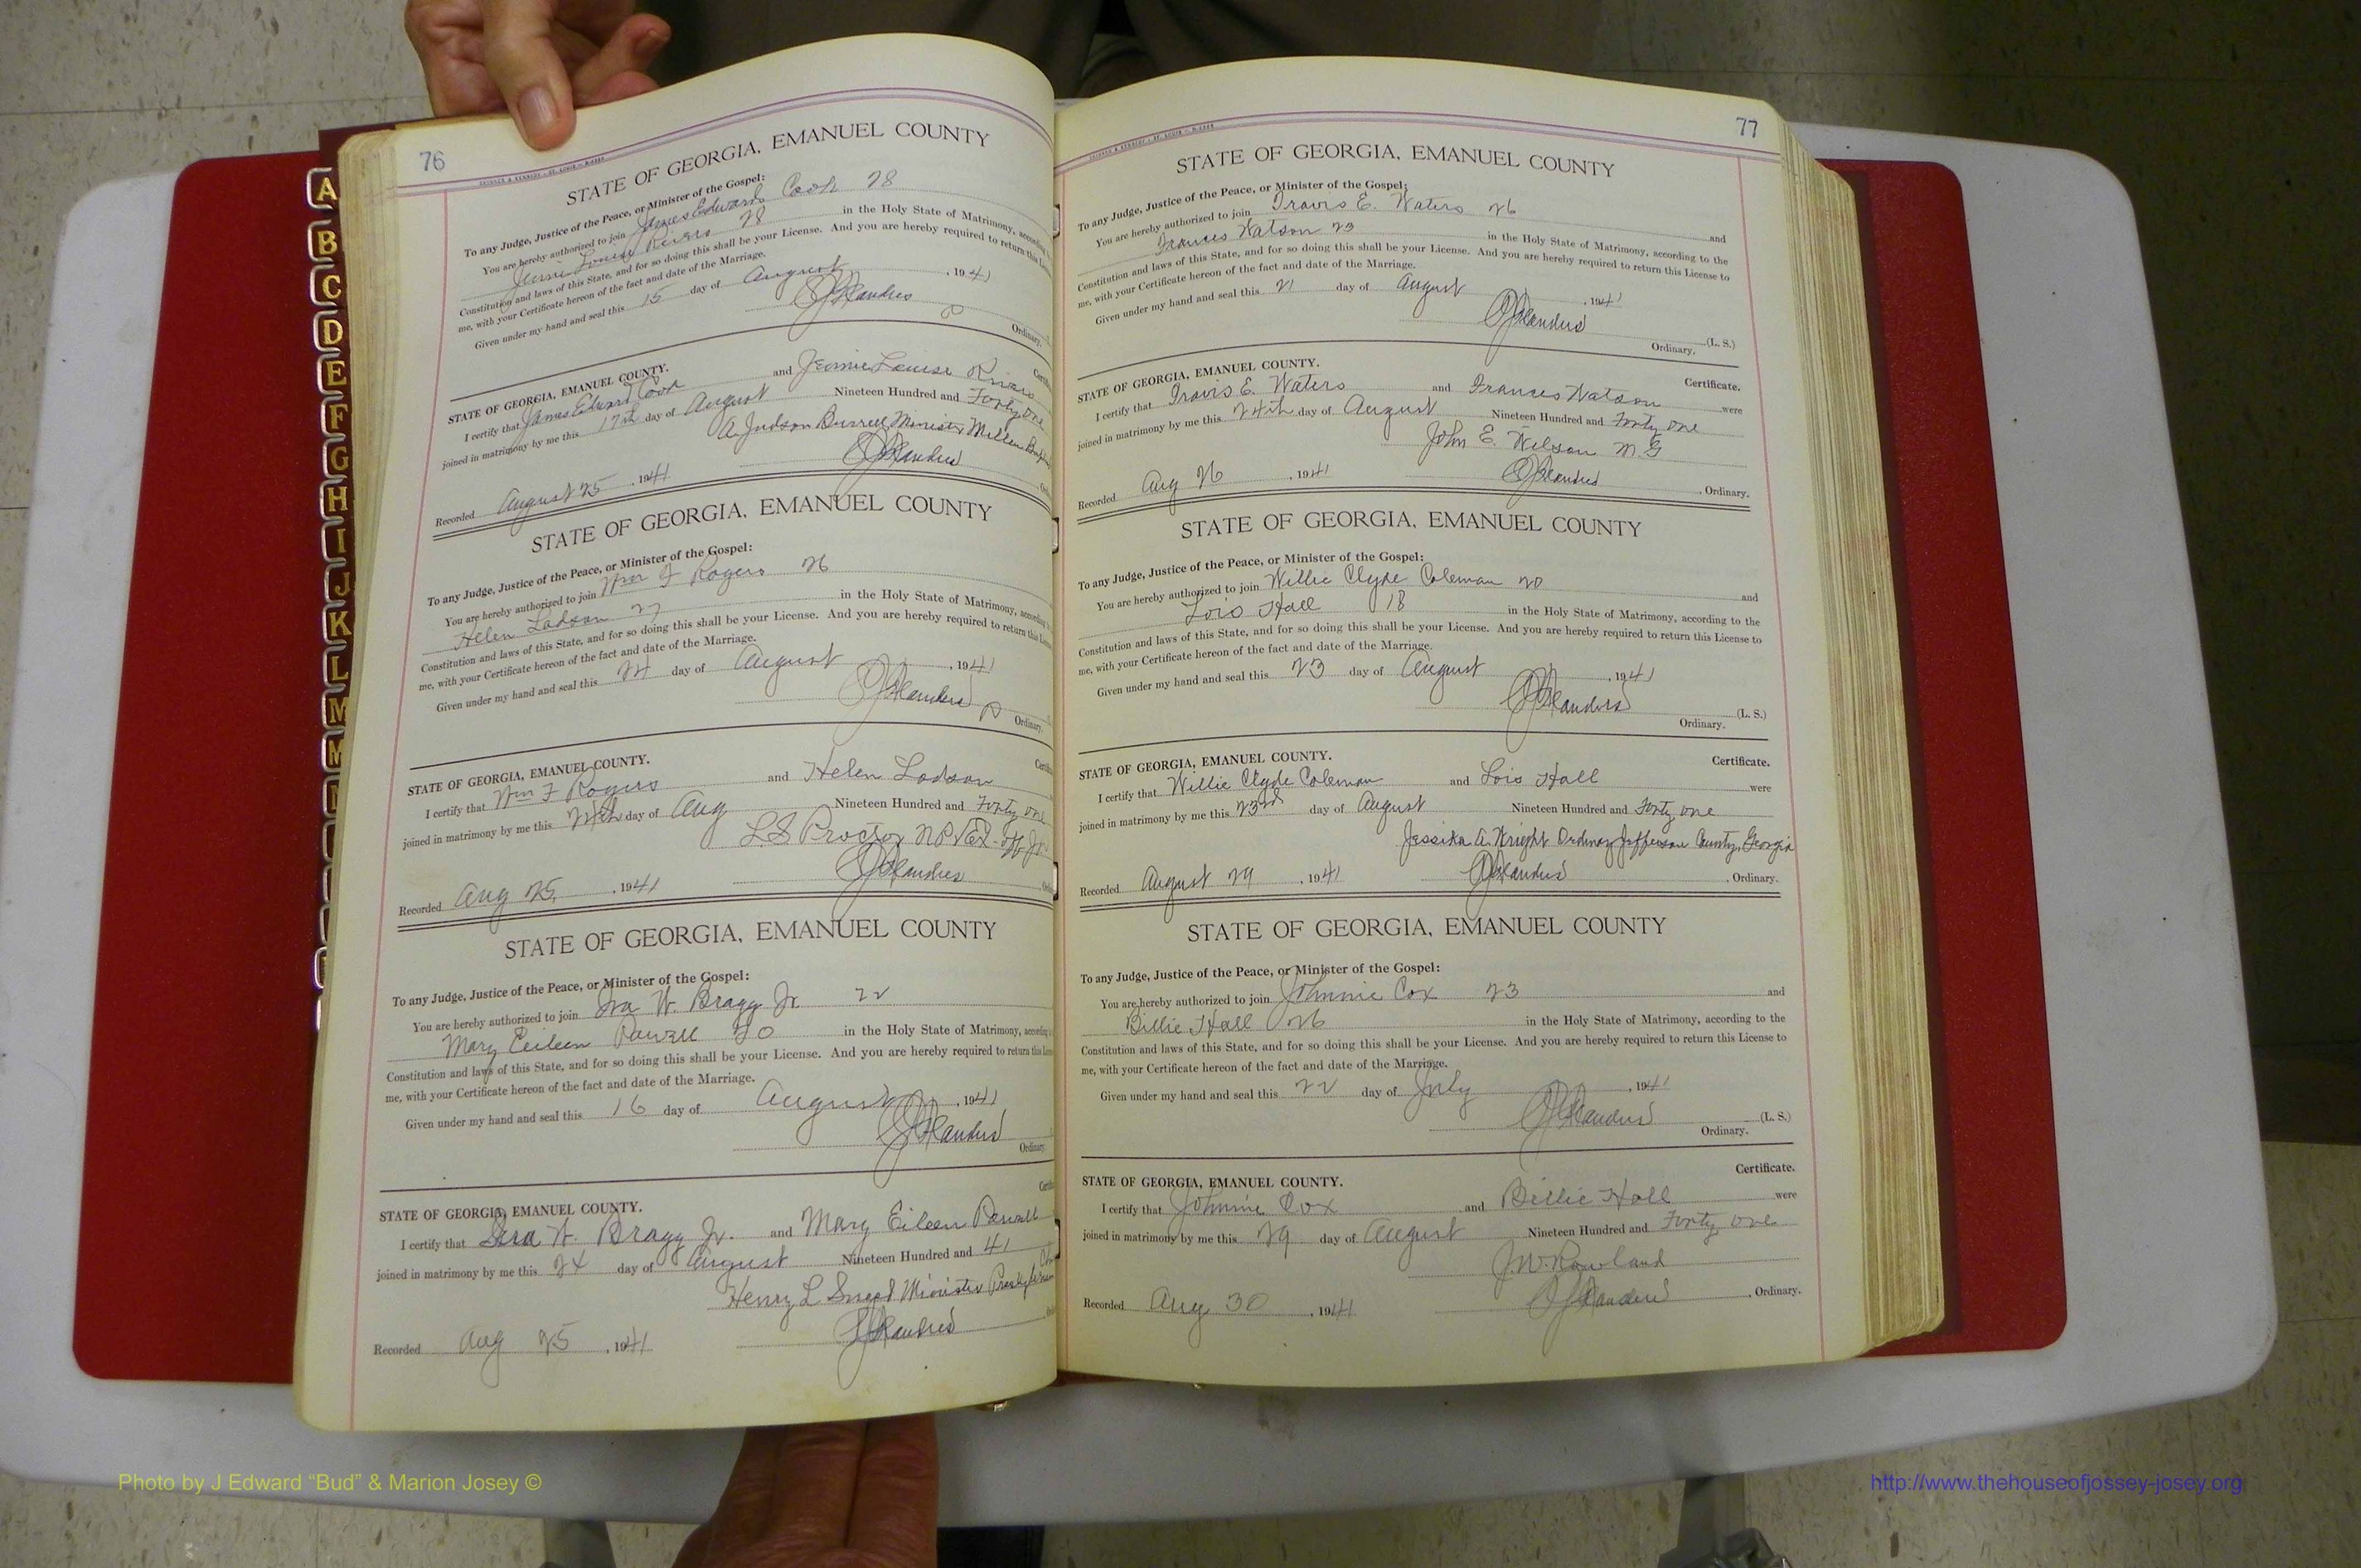 76
STATE OF GEORGIA, EMANUEL COUNTY
To any Judge, Justice of the Peace, or Minister of the Gospel:
You are hereby authorized to join James Edward Cook 28
Jennie Louise Rivers 28 in the Holy State of Matrimony, according
Constitution and laws of this State, and for so doing this shall be your License. And you are hereby required to return this
me, with your Certificate hereon of the fact and date of the Marriage.
Given under my hand and seal this 15 day of August , 1941
Ordinary.
STATE OF GEORGIA, EMANUEL COUNTY.
I certify that James Edward Cook and Jennie Louise Rivers
joined in matrimony by me this 17th day of August Nineteen Hundred and Forty one
A. Judson Burrell Minister Millen
Recorded August 25 , 1941
STATE OF GEORGIA, EMANUEL COUNTY
To any Judge, Justice of the Peace, or Minister of the Gospel:
You are hereby authorized to join Wm F Rogers 26
Helen Ladson 27 in the Holy State of Matrimony,
Constitution and laws of this State, and for so doing this shall be your License. And you are hereby required to return this
me, with your Certificate hereon of the fact and date of the Marriage.
Given under my hand and seal this 24 day of August , 1941
Ordinary.
STATE OF GEORGIA, EMANUEL COUNTY.
I certify that Wm F Rogers and Helen Ladson
joined in matrimony by me this 24th day of Aug Nineteen Hundred and Forty one
L.S Proctor NP
Recorded Aug 25, , 1941
STATE OF GEORGIA, EMANUEL COUNTY
To any Judge, Justice of the Peace, or Minister of the Gospel:
You are hereby authorized to join Ira W. Bragg Jr. 22
Mary Eileen Powell 20 in the Holy State of Matrimony, according
Constitution and laws of this State, and for so doing this shall be your License. And you are hereby required to return this
me, with your Certificate hereon of the fact and date of the Marriage.
Given under my hand and seal this 16 day of August , 1941
Ordinary.
STATE OF GEORGIA, EMANUEL COUNTY.
I certify that Ira W. Bragg Jr. and Mary Eileen Powell
joined in matrimony by me this 24 day of August Nineteen Hundred and 41
Henry L Sneed Minister Presbyterian
Recorded Aug 25 , 1941
77
STATE OF GEORGIA, EMANUEL COUNTY
To any Judge, Justice of the Peace, or Minister of the Gospel:
You are hereby authorized to join Travis E. Waters 26 and
Frances Watson 23 in the Holy State of Matrimony, according to the
Constitution and laws of this State, and for so doing this shall be your License. And you are hereby required to return this License to
me, with your Certificate hereon of the fact and date of the Marriage.
Given under my hand and seal this 21 day of August , 1941
(L. S.)
Ordinary.
Certificate.
STATE OF GEORGIA, EMANUEL COUNTY.
I certify that Travis E. Waters and Frances Watson were
joined in matrimony by me this 24th day of August Nineteen Hundred and Forty one
John E. Wilson M.G
Recorded Aug 26 , 1941 , Ordinary.
STATE OF GEORGIA, EMANUEL COUNTY
To any Judge, Justice of the Peace, or Minister of the Gospel:
You are hereby authorized to join Willie Clyde Coleman 20 and
Lois Hall 18 in the Holy State of Matrimony, according to the
Constitution and laws of this State, and for so doing this shall be your License. And you are hereby required to return this License to
me, with your Certificate hereon of the fact and date of the Marriage.
Given under my hand and seal this 23 day of August , 1941
(L. S.)
Ordinary.
Certificate.
STATE OF GEORGIA, EMANUEL COUNTY.
I certify that Willie Clyde Coleman and Lois Hall were
joined in matrimony by me this 23rd day of August Nineteen Hundred and Forty one
Jessika A. Wright Ordinary Jefferson County, Georgia
Recorded August 29 , 1941 , Ordinary.
STATE OF GEORGIA, EMANUEL COUNTY
To any Judge, Justice of the Peace, or Minister of the Gospel:
You are hereby authorized to join Johnnie Cox 23 and
Billie Hall 26 in the Holy State of Matrimony, according to the
Constitution and laws of this State, and for so doing this shall be your License. And you are hereby required to return this License to
me, with your Certificate hereon of the fact and date of the Marriage.
Given under my hand and seal this 22 day of July , 1941
(L. S.)
Ordinary.
Certificate.
STATE OF GEORGIA, EMANUEL COUNTY.
I certify that Johnnie Cox and Billie Hall were
joined in matrimony by me this 29 day of August Nineteen Hundred and Forty one
J.W. Rowland
Recorded Aug 30 , 1941 , Ordinary.
A
B
C
D
E
F
G
H
I
J
K
L
M
Photo by J Edward “Bud” & Marion Josey ©
http://www.thehouseofjossey-josey.org